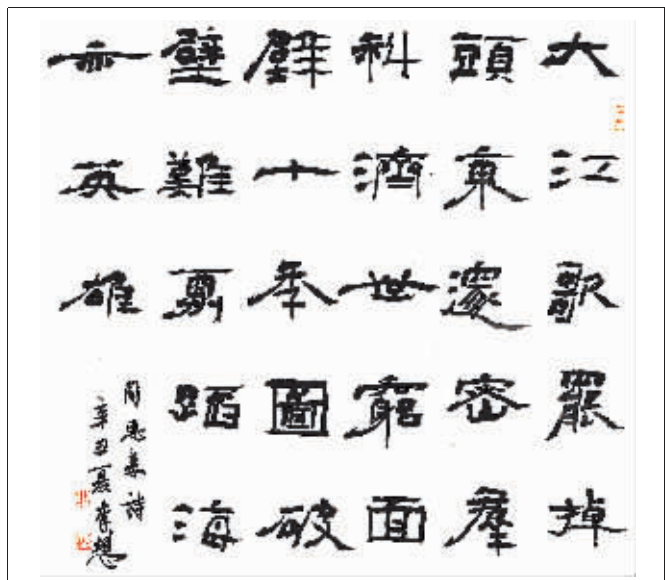 大江歌罷掉
頭東邃密羣
科濟世窮面
壁十年圖破
壁難酬蹈海
亦英雄
周恩來詩
辛丑夏